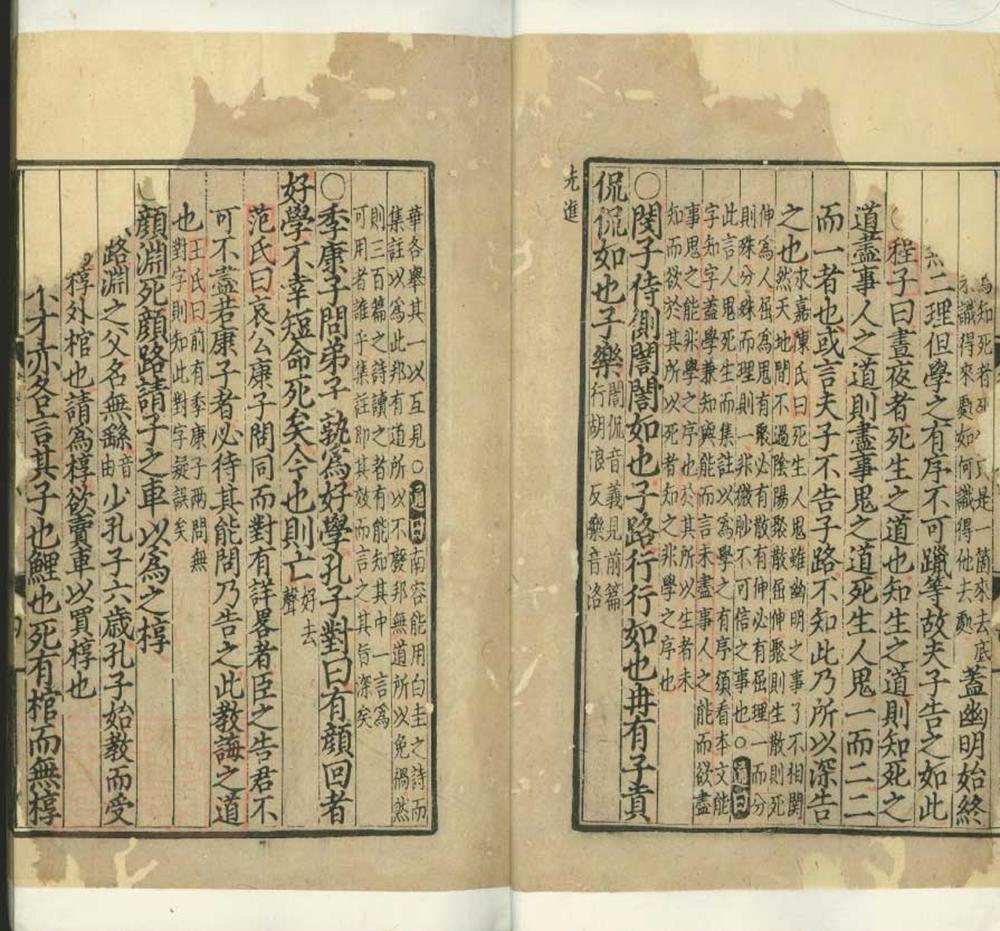 為知死者死
只是一箇來去底
示識得來處如何識得他去處
蓋幽明始終
二理但學之有序不可躐等故夫子告之如此
程子曰晝夜者死生之道也知生之道則知死之
道盡事人之道則盡事鬼之道死生人鬼一而二二
而一者也或言夫子不告子路不知此乃所以深告
之也
永嘉陳氏曰死生人鬼雖幽明之事了不相關
然天地間不過陰陽聚散屈伸聚則生散則死
伸為人屈為鬼有聚必有散有伸必有屈理一而分
則殊分殊而理則一非微眇不可信之事也○通曰
此言人鬼死生而集註以為學之有序須看本文能
字知字蓋學兼知與能而言未盡事人之能而欲盡
事鬼之能非學之序也於其所以生者未
知而欲於其所以死者知之非學之序也
○閔子侍側誾誾如也子路行行如也冉有子貢
侃侃如也子樂
誾侃音義見前篇
行胡浪反樂音洛
先進
華各舉其一以互見○通曰南容能用白圭之詩而
集註以為此邦有道所以不廢邦無道所以免禍然
則三百篇之詩讀之者有能知其中一言為
可用者誰乎集註即其效而言之其旨深矣
○季康子問弟子孰為好學孔子對曰有顏回者
好學不幸短命死矣今也則亡
好去
聲
范氏曰哀公康子問同而對有詳畧者臣之告君不
可不盡若康子者必待其能問乃告之此教誨之道
也
王氏曰前有季康子兩問無
對字則知此對字疑誤矣
顏淵死顏路請子之車以為之椁
路淵之父名無繇
音
由
少孔子六歲孔子始教而受
椁外棺也請為椁欲賣車以買椁也
不才亦各言其子也鯉也死有棺而無椁